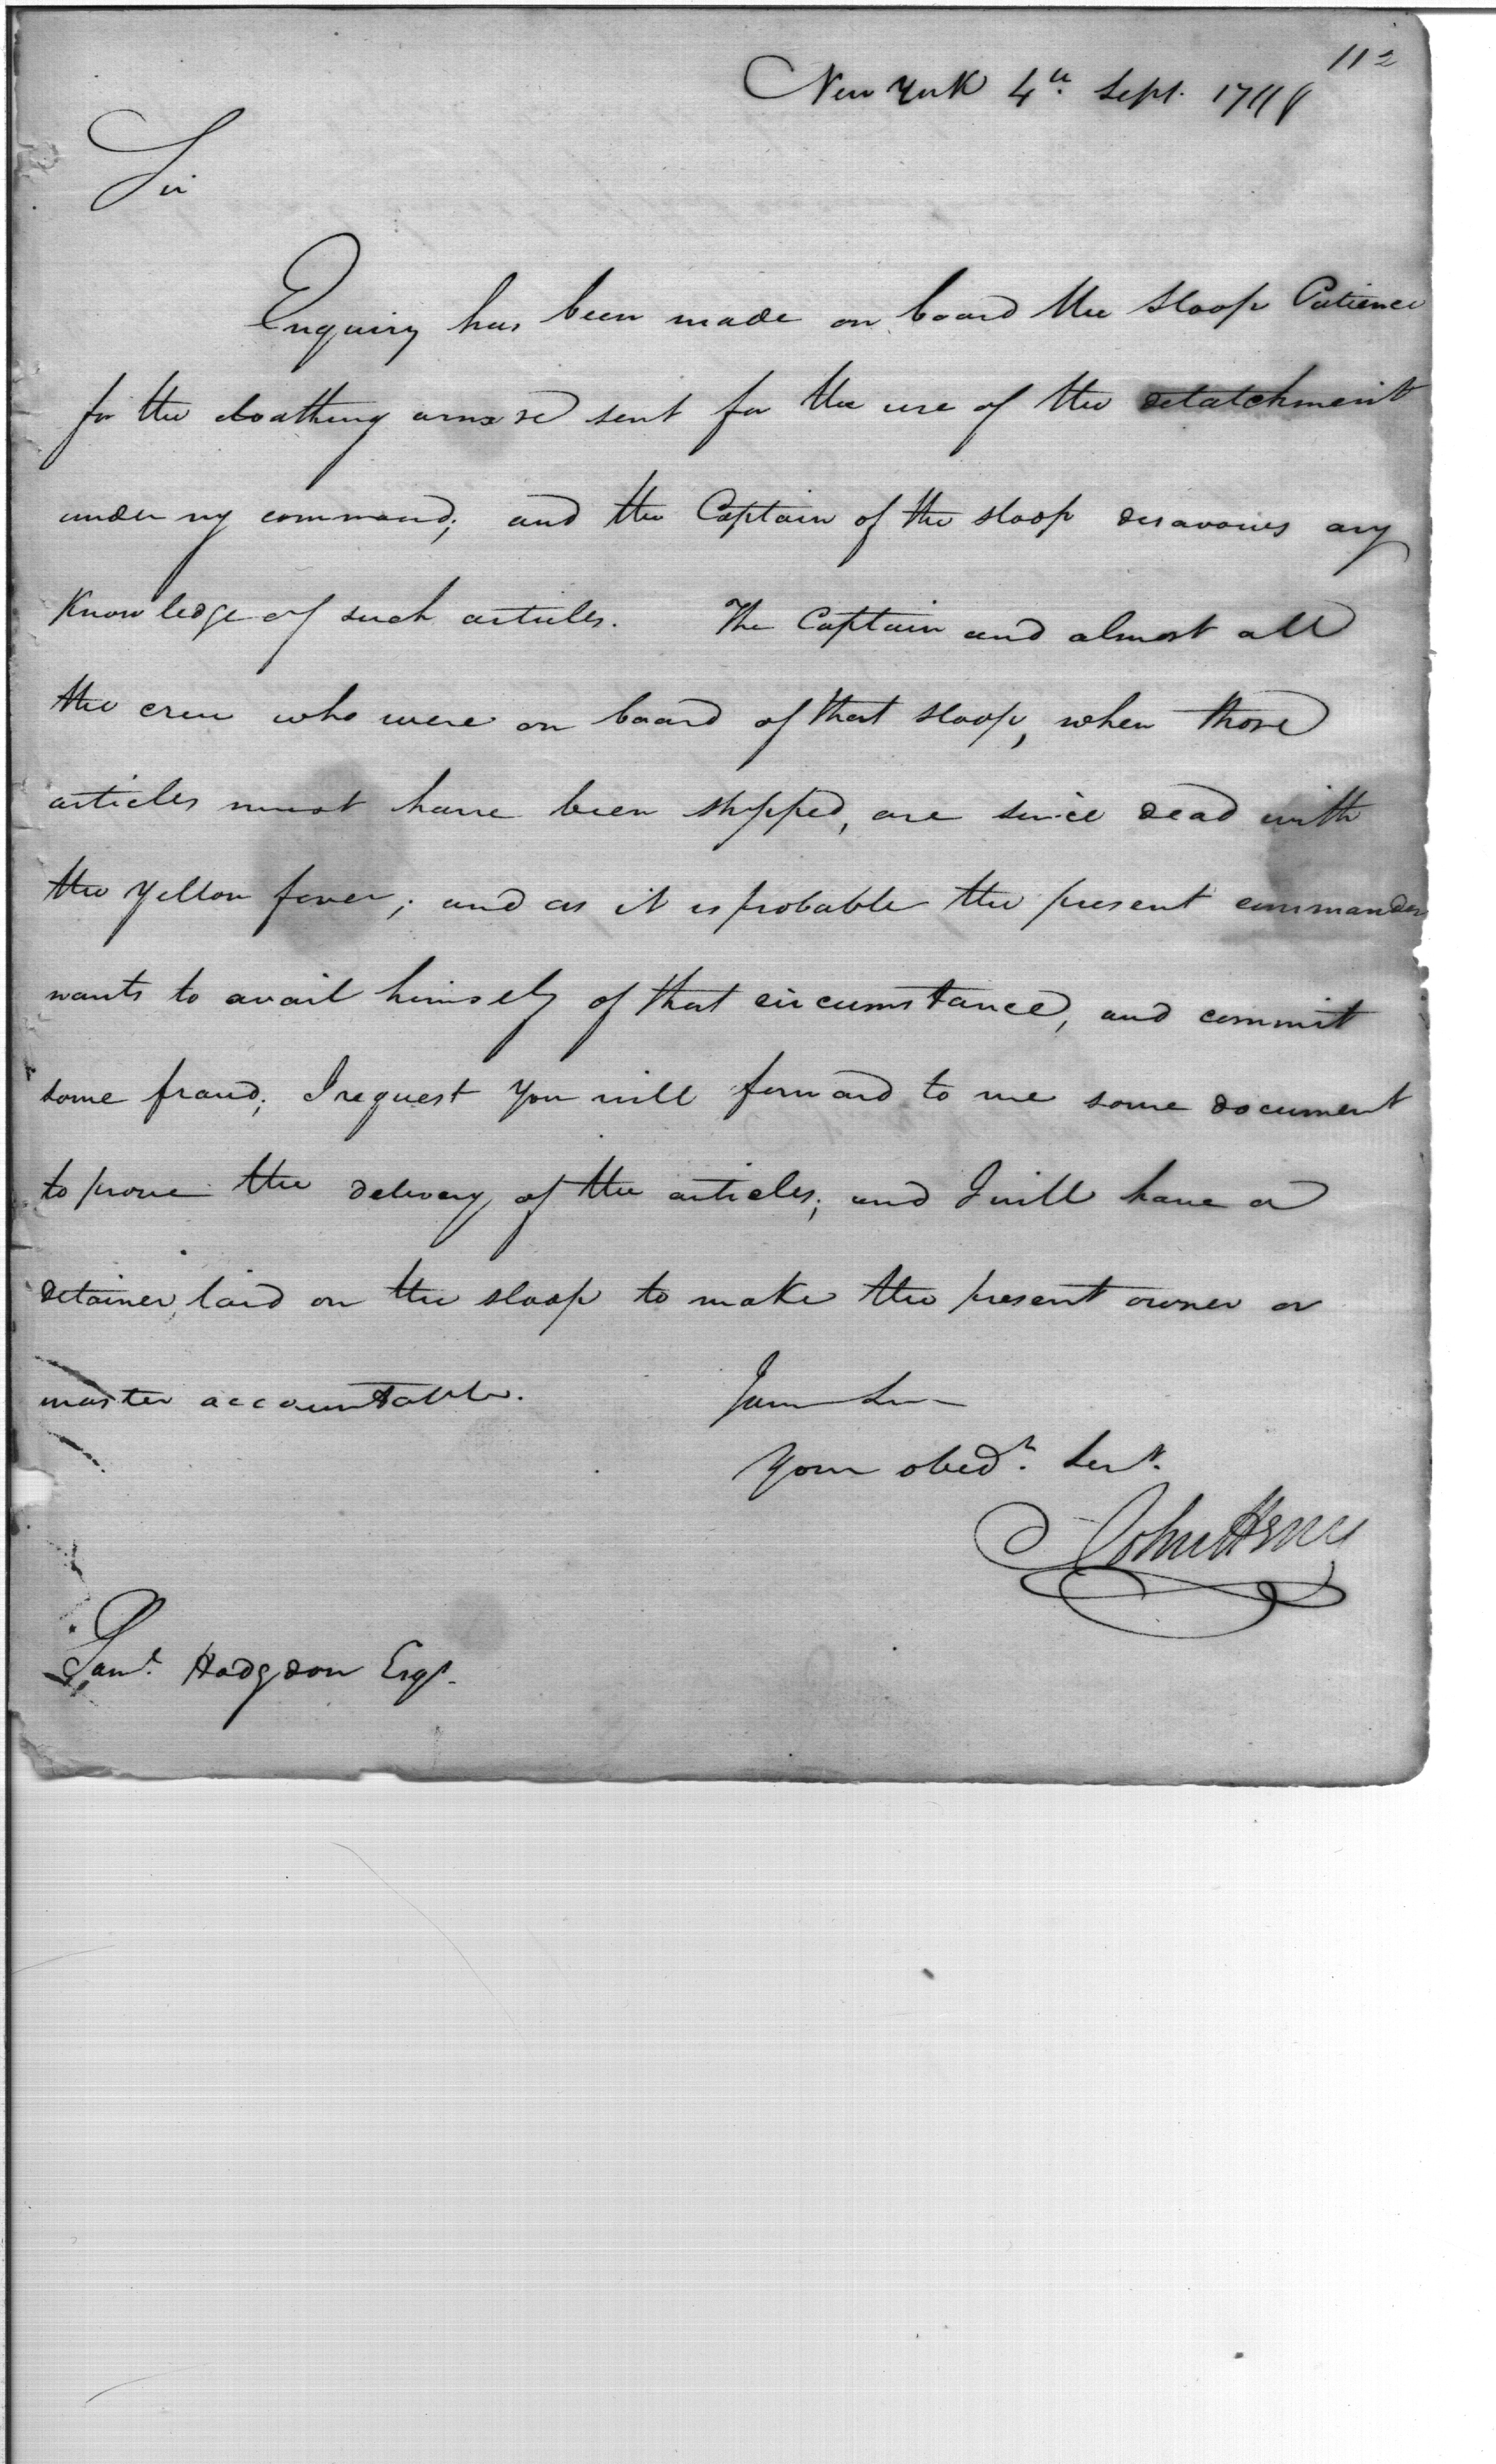 112
New York 4th. Sept. 1798
Sir
Enquiry has been made on board the sloop Patience
for the cloathing arms &c sent for the use of the detatchment
under my command; and the Captain of the sloop disavows any
Knowledge of such articles. The Captain and almost all
the crew who were on board of that sloop, when those
articles must have been shipped, are since dead with
the Yellow fever; and as it is probable the present commander
wants to avail himself of that circumstance, and commit
some fraud; I request you will forward to me some document
to prove the delivery of the articles; and I will have a
detainer laid on the sloop to make the present owner or
master accountable. I am Sir
Your obedt. Servt.
John Henry
Saml. Hodgdon Esqr.